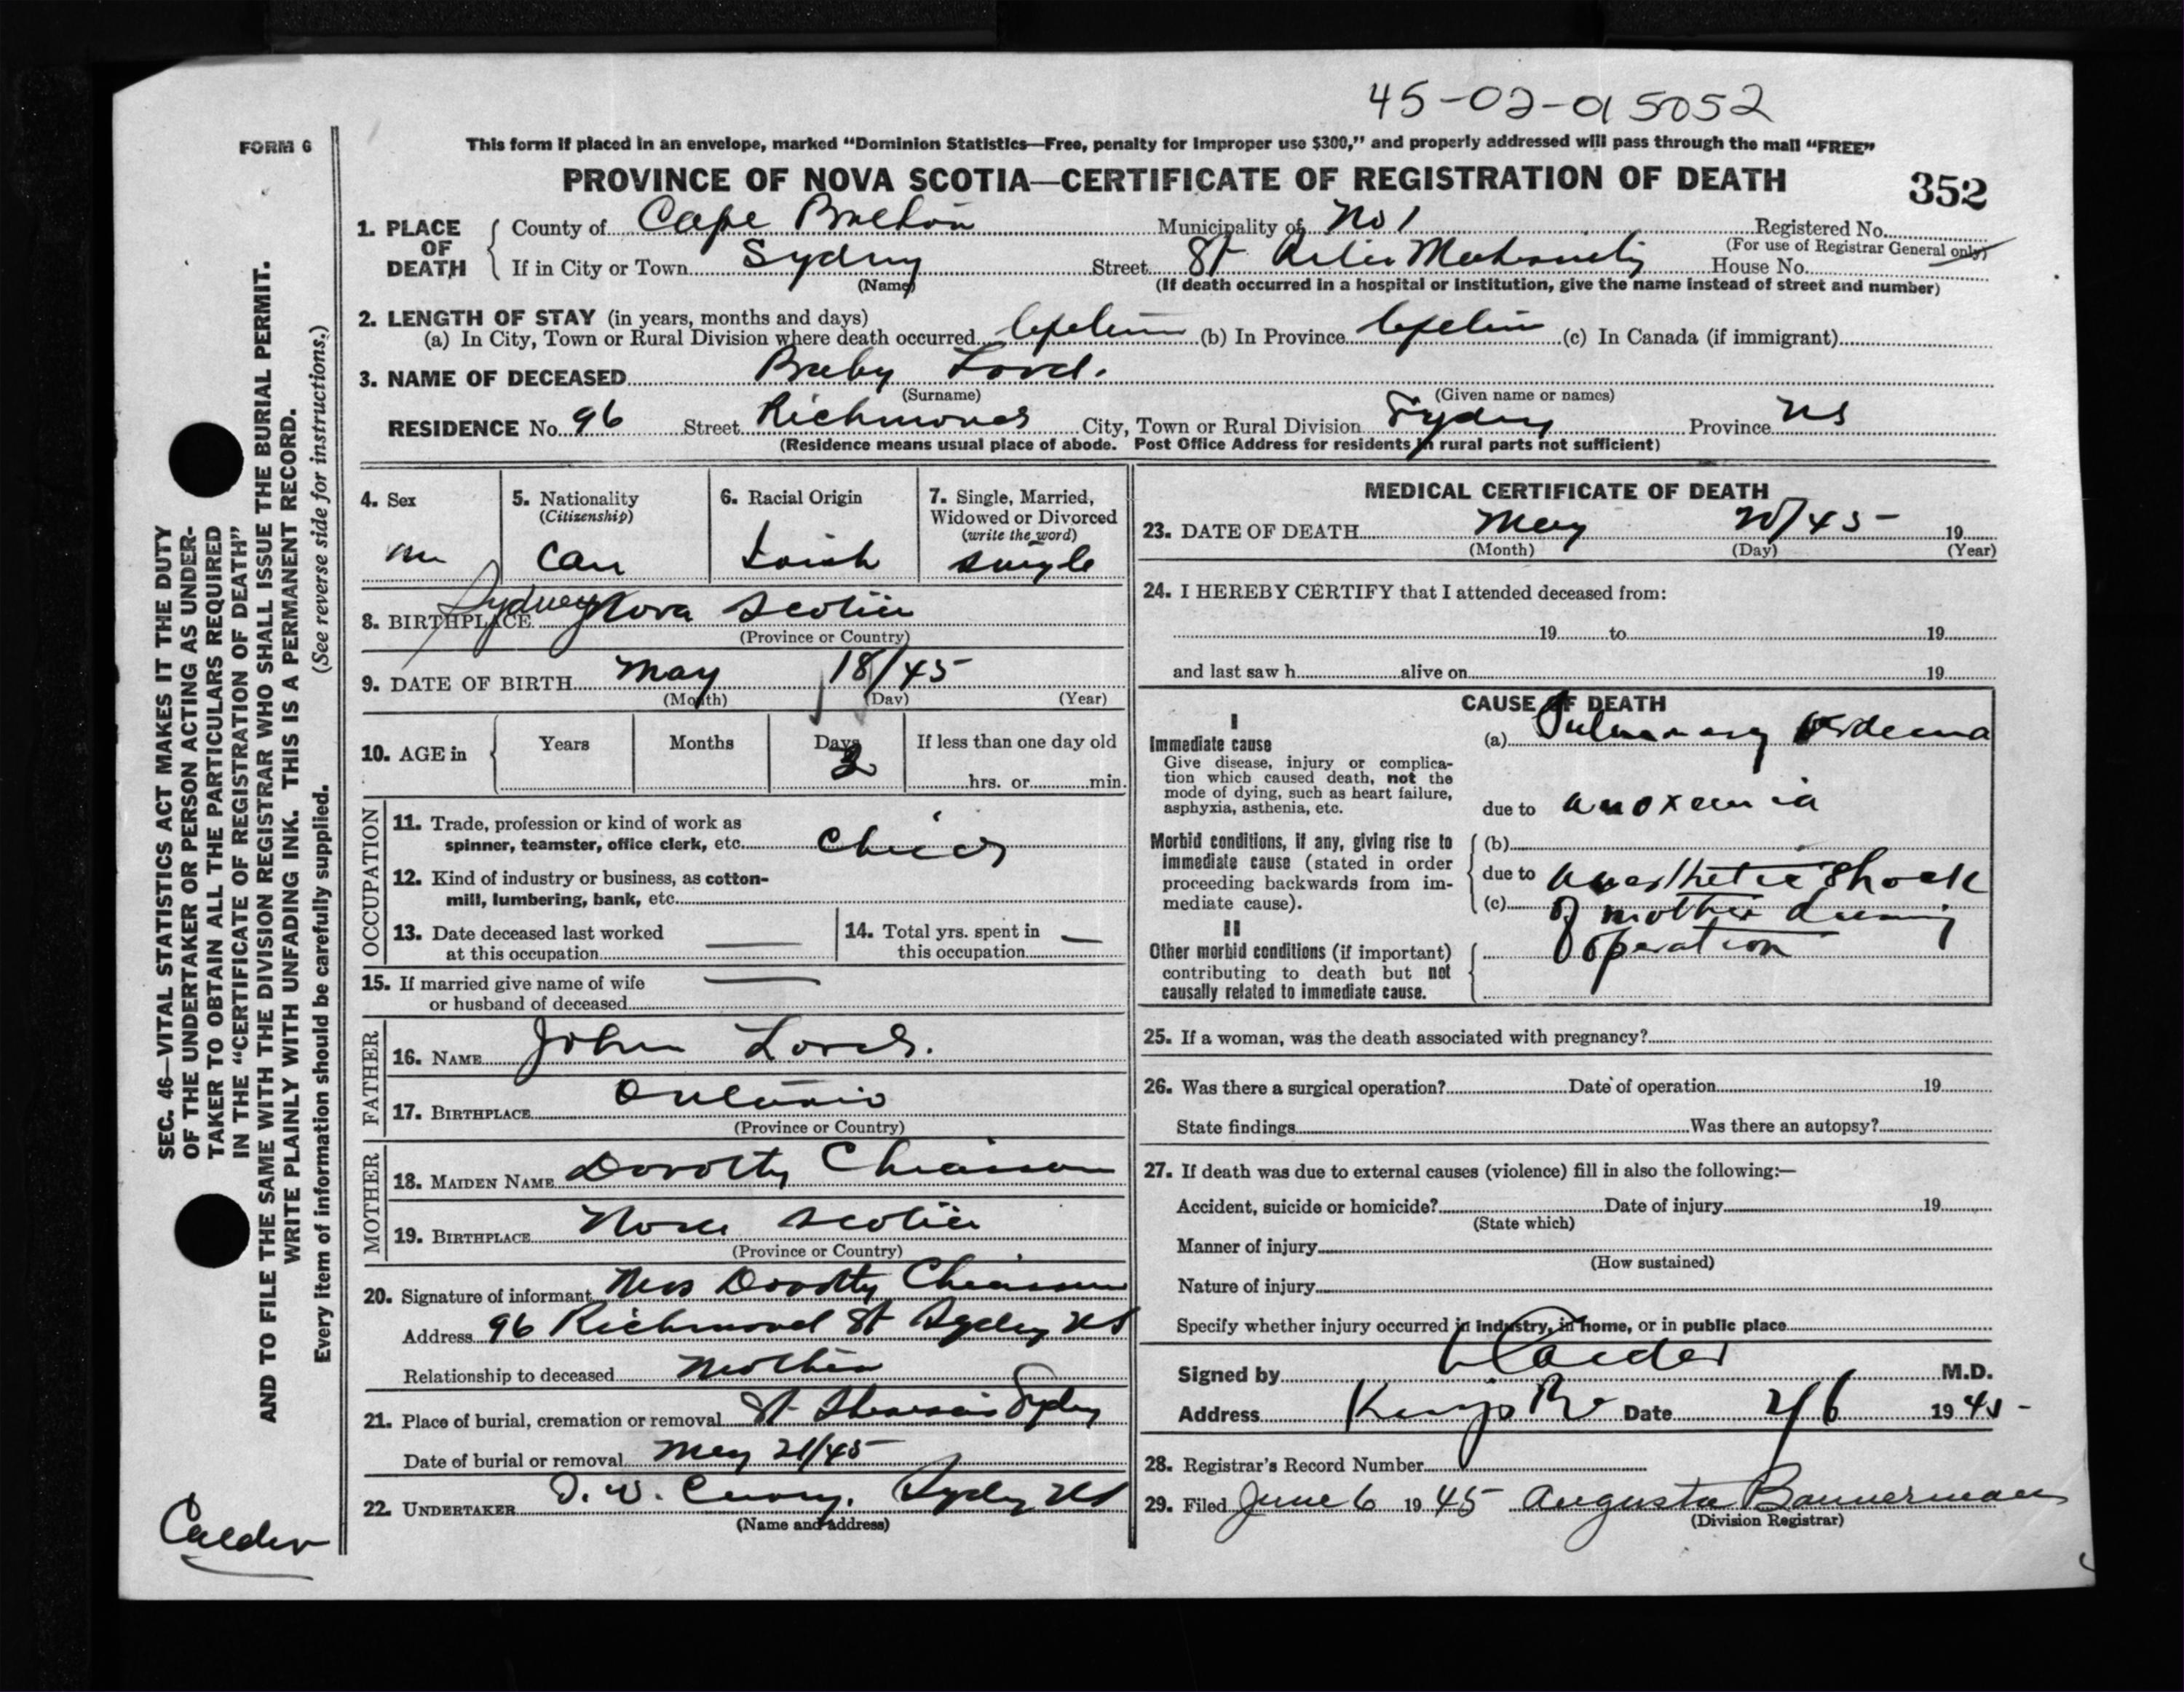 45-02-a 5052
FORM 6
This form if placed in an envelope, marked "Dominion Statistics—Free, penalty for improper use $300," and properly addressed will pass through the mail "FREE"
PROVINCE OF NOVA SCOTIA—CERTIFICATE OF REGISTRATION OF DEATH
352
1. PLACE OF DEATH
County of Cape Breton Municipality of No 1 Registered No.
(For use of Registrar General only)
If in City or Town Sydney Street St Maternity House No.
(Name) (If death occurred in a hospital or institution, give the name instead of street and number)
2. LENGTH OF STAY (in years, months and days)
(a) In City, Town or Rural Division where death occurred Lifetime (b) In Province Lifetime (c) In Canada (if immigrant)
3. NAME OF DECEASED Baby Lord.
(Surname) (Given name or names)
RESIDENCE No. 96 Street Richmond City, Town or Rural Division Sydney Province NS
(Residence means usual place of abode. Post Office Address for residents in rural parts not sufficient)
4. Sex
m
5. Nationality
(Citizenship)
Can
6. Racial Origin
7. Single, Married,
Widowed or Divorced
(write the word)
single
8. BIRTHPLACE Sydney Nova Scotia
(Province or Country)
9. DATE OF BIRTH May 18/45
(Month) (Day) (Year)
10. AGE in
Years Months Days If less than one day old
2 hrs. or min.
OCCUPATION
11. Trade, profession or kind of work as
spinner, teamster, office clerk, etc. Child
12. Kind of industry or business, as cotton-
mill, lumbering, bank, etc.
13. Date deceased last worked
at this occupation —
14. Total yrs. spent in
this occupation —
15. If married give name of wife
or husband of deceased —
FATHER
16. NAME John Lord.
17. BIRTHPLACE Ontario
(Province or Country)
MOTHER
18. MAIDEN NAME Dorothy Chiasson
19. BIRTHPLACE Nova Scotia
(Province or Country)
20. Signature of informant Mrs Dorothy Chiasson
Address 96 Richmond St Sydney NS
Relationship to deceased Mother
21. Place of burial, cremation or removal St Sydney
Date of burial or removal May 21/45
22. UNDERTAKER Sydney NS
(Name and address)
MEDICAL CERTIFICATE OF DEATH
23. DATE OF DEATH May 20/45 19
(Month) (Day) (Year)
24. I HEREBY CERTIFY that I attended deceased from:
19 to 19
and last saw h alive on 19
CAUSE OF DEATH
I
Immediate cause
Give disease, injury or complica-
tion which caused death, not the
mode of dying, such as heart failure,
asphyxia, asthenia, etc.
(a) Pulmonary Oedema
due to anoxemia
Morbid conditions, if any, giving rise to
immediate cause (stated in order
proceeding backwards from im-
mediate cause).
(b)
due to anesthetic shock
(c) of mother during
operation
II
Other morbid conditions (if important)
contributing to death but not
causally related to immediate cause.
25. If a woman, was the death associated with pregnancy?
26. Was there a surgical operation? Date of operation 19
State findings Was there an autopsy?
27. If death was due to external causes (violence) fill in also the following:—
Accident, suicide or homicide? Date of injury 19
(State which)
Manner of injury
(How sustained)
Nature of injury
Specify whether injury occurred in industry, in home, or in public place
Signed by Calder M.D.
Address Date 2/6 1945
28. Registrar's Record Number
29. Filed June 6 1945 Augusta Bannerman
(Division Registrar)
SEC. 46—VITAL STATISTICS ACT MAKES IT THE DUTY
OF THE UNDERTAKER OR PERSON ACTING AS UNDER-
TAKER TO OBTAIN ALL THE PARTICULARS REQUIRED
IN THE "CERTIFICATE OF REGISTRATION OF DEATH"
AND TO FILE THE SAME WITH THE DIVISION REGISTRAR WHO SHALL ISSUE THE BURIAL PERMIT.
WRITE PLAINLY WITH UNFADING INK. THIS IS A PERMANENT RECORD.
Every item of information should be carefully supplied. (See reverse side for instructions.)
Calder